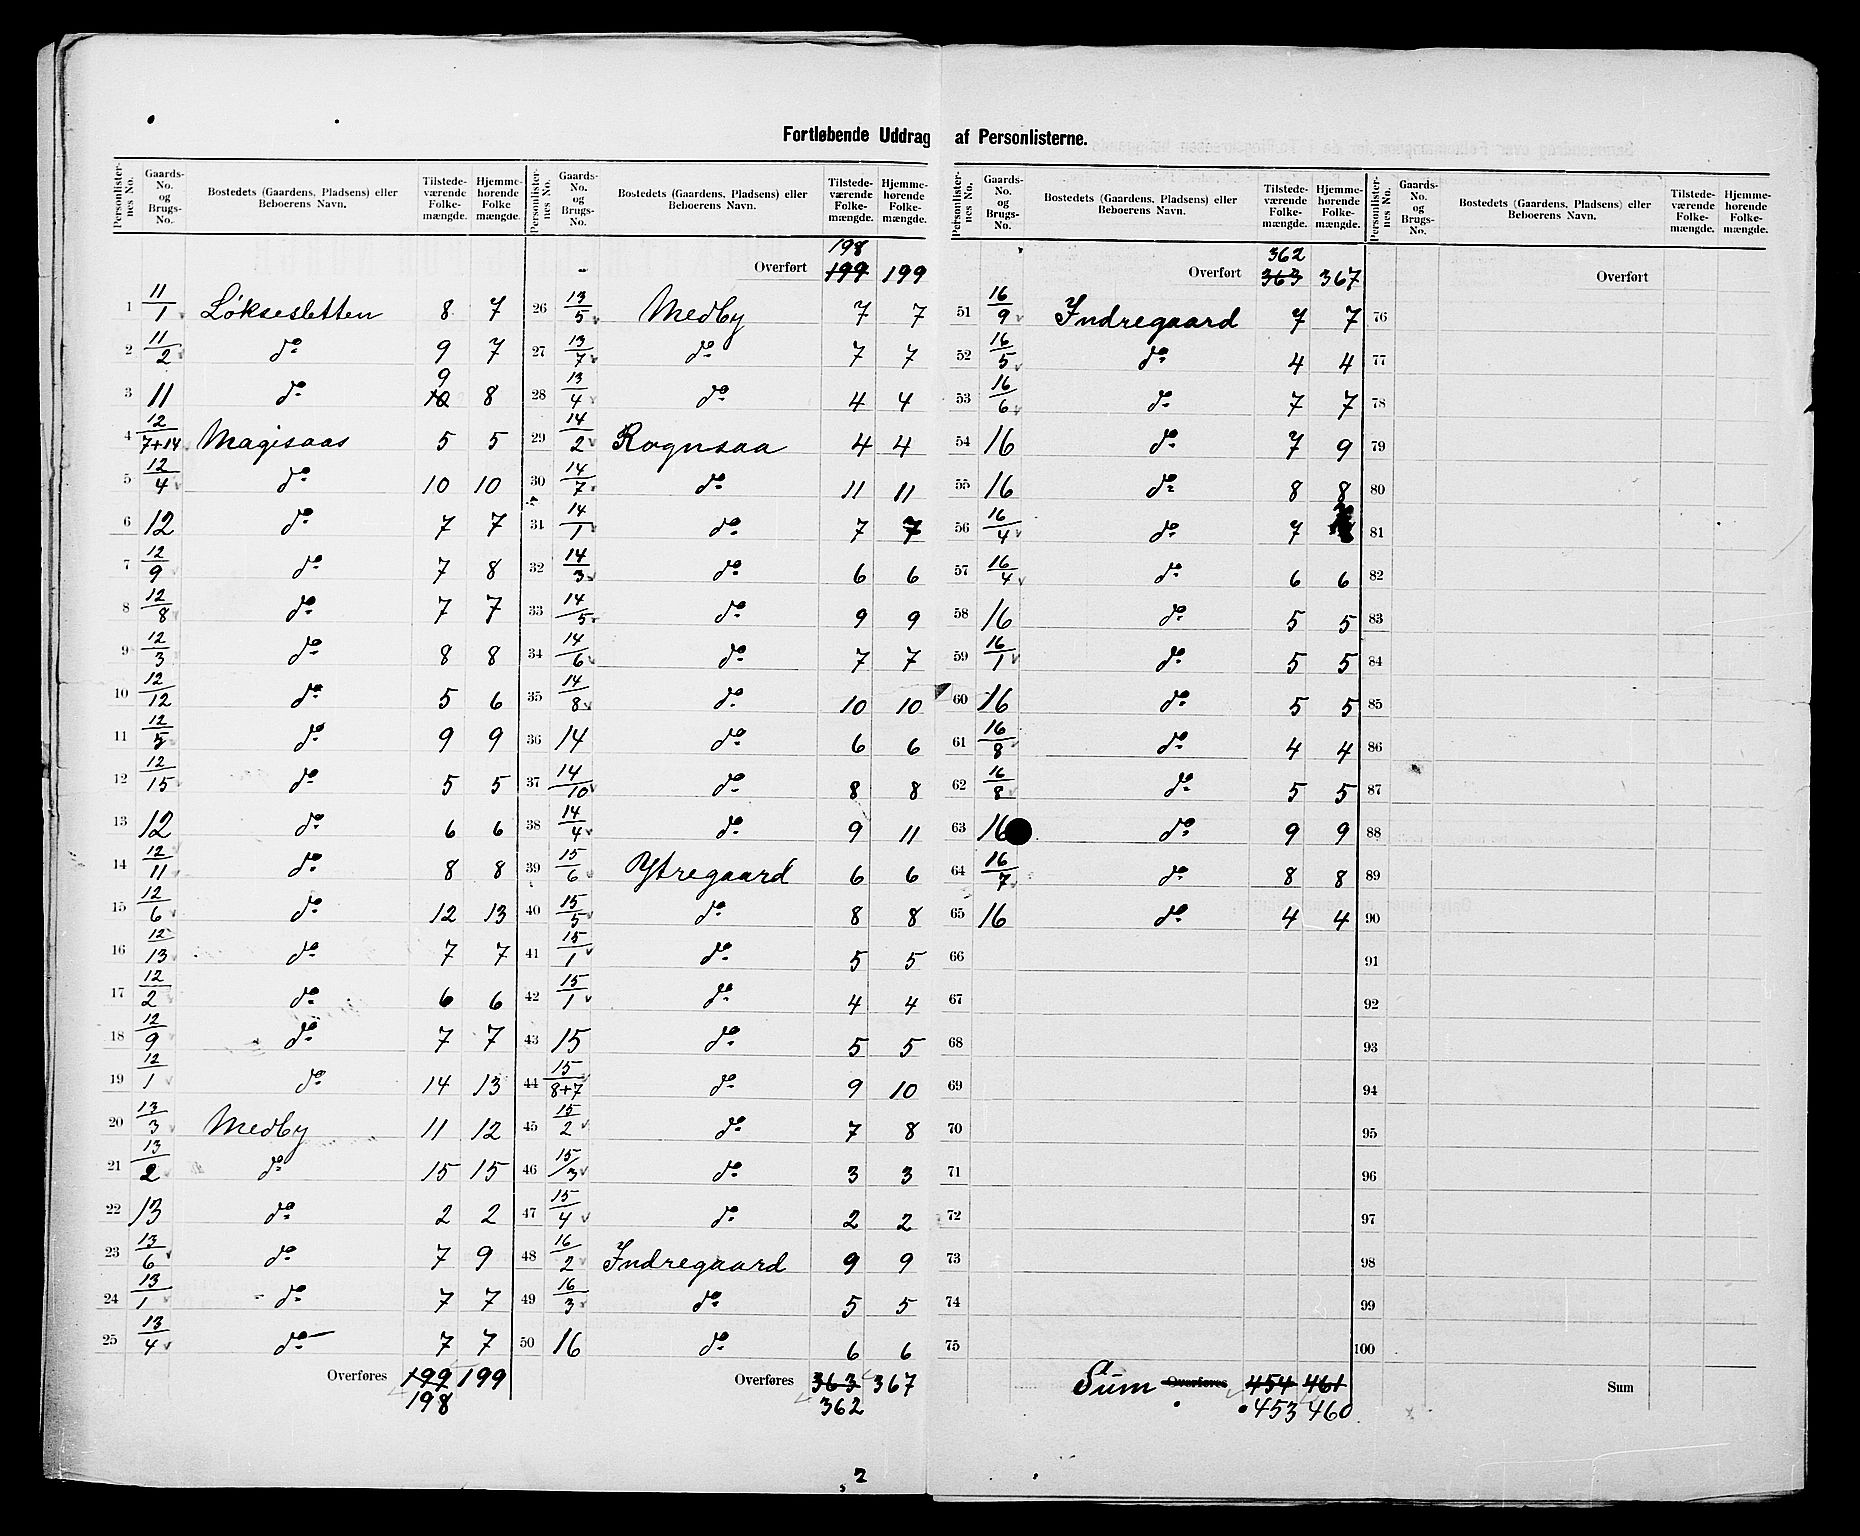 Fortløbende Uddrag af Personlisterne.
Personlisternes No. | Gaards-No. og Brugs-No. | Bostedets (Gaardens, Pladsens) eller Beboerens Navn. | Tilstedeværende Folkemængde. | Hjemmehørende Folkemængde.
1 11/1 Løksesletten 8 7
2 11/2 do 9 7
3 11 do 10 9 8
4 12/7+14 Magisaas 5 5
5 12/4 do 10 10
6 12 do 7 7
7 12/9 do 7 8
8 12/8 do 7 7
9 12/3 do 8 8
10 12/12 do 5 6
11 12/5 do 9 9
12 12/15 do 5 5
13 12 do 6 6
14 12/11 do 8 8
15 12/6 do 12 13
16 12/13 do 7 7
17 12/2 do 6 6
18 12/9 do 7 7
19 12/1 do 14 13
20 13/3 Medby 11 12
21 13/2 do 15 15
22 13 do 2 2
23 13/6 do 7 9
24 13/1 do 7 7
25 13/4 do 7 7
Overføres 199 199
198
Personlisternes No. | Gaards-No. og Brugs-No. | Bostedets (Gaardens, Pladsens) eller Beboerens Navn. | Tilstedeværende Folkemængde. | Hjemmehørende Folkemængde.
198
Overført 199 199
26 13/5 Medby 7 7
27 13/7 do 7 7
28 13/4 do 4 4
29 14/2 Rognsaa 4 4
30 14/7 do 11 11
31 14/1 do 7 7
32 14/3 do 6 6
33 14/5 do 9 9
34 14/6 do 7 7
35 14/8 do 10 10
36 14 do 6 6
37 14/10 do 8 8
38 14/4 do 9 11
39 15/6 Ytregaard 6 6
40 15/5 do 8 8
41 15/1 do 5 5
42 15/1 do 4 4
43 15 do 5 5
44 15/8+7 do 9 10
45 15/2 do 7 8
46 15/3 do 3 3
47 15/4 do 2 2
48 16/2 Indregaard 9 9
49 16/3 do 5 5
50 16 do 6 6
Overføres 363 367
362
2
Personlisternes No. | Gaards-No. og Brugs-No. | Bostedets (Gaardens, Pladsens) eller Beboerens Navn. | Tilstedeværende Folkemængde. | Hjemmehørende Folkemængde.
362
Overført 363 367
51 16/9 Indregaard 7 7
52 16/5 do 4 4
53 16/6 do 7 7
54 16 do 7 9
55 16 do 8 8
56 16/4 do 7
57 16/4 do 6 6
58 16 do 5 5
59 16/1 do 5 5
60 16 do 5 5
61 16/8 do 4 4
62 16/8 do 5 5
63 16 do 9 9
64 16/7 do 8 8
65 16 do 4 4
66
67
68
69
70
71
72
73
74
75
Sum Overføres 454 461
453 460
Personlisternes No. | Gaards-No. og Brugs-No. | Bostedets (Gaardens, Pladsens) eller Beboerens Navn. | Tilstedeværende Folkemængde. | Hjemmehørende Folkemængde.
Overført
76
77
78
79
80
81
82
83
84
85
86
87
88
89
90
91
92
93
94
95
96
97
98
99
100
Sum